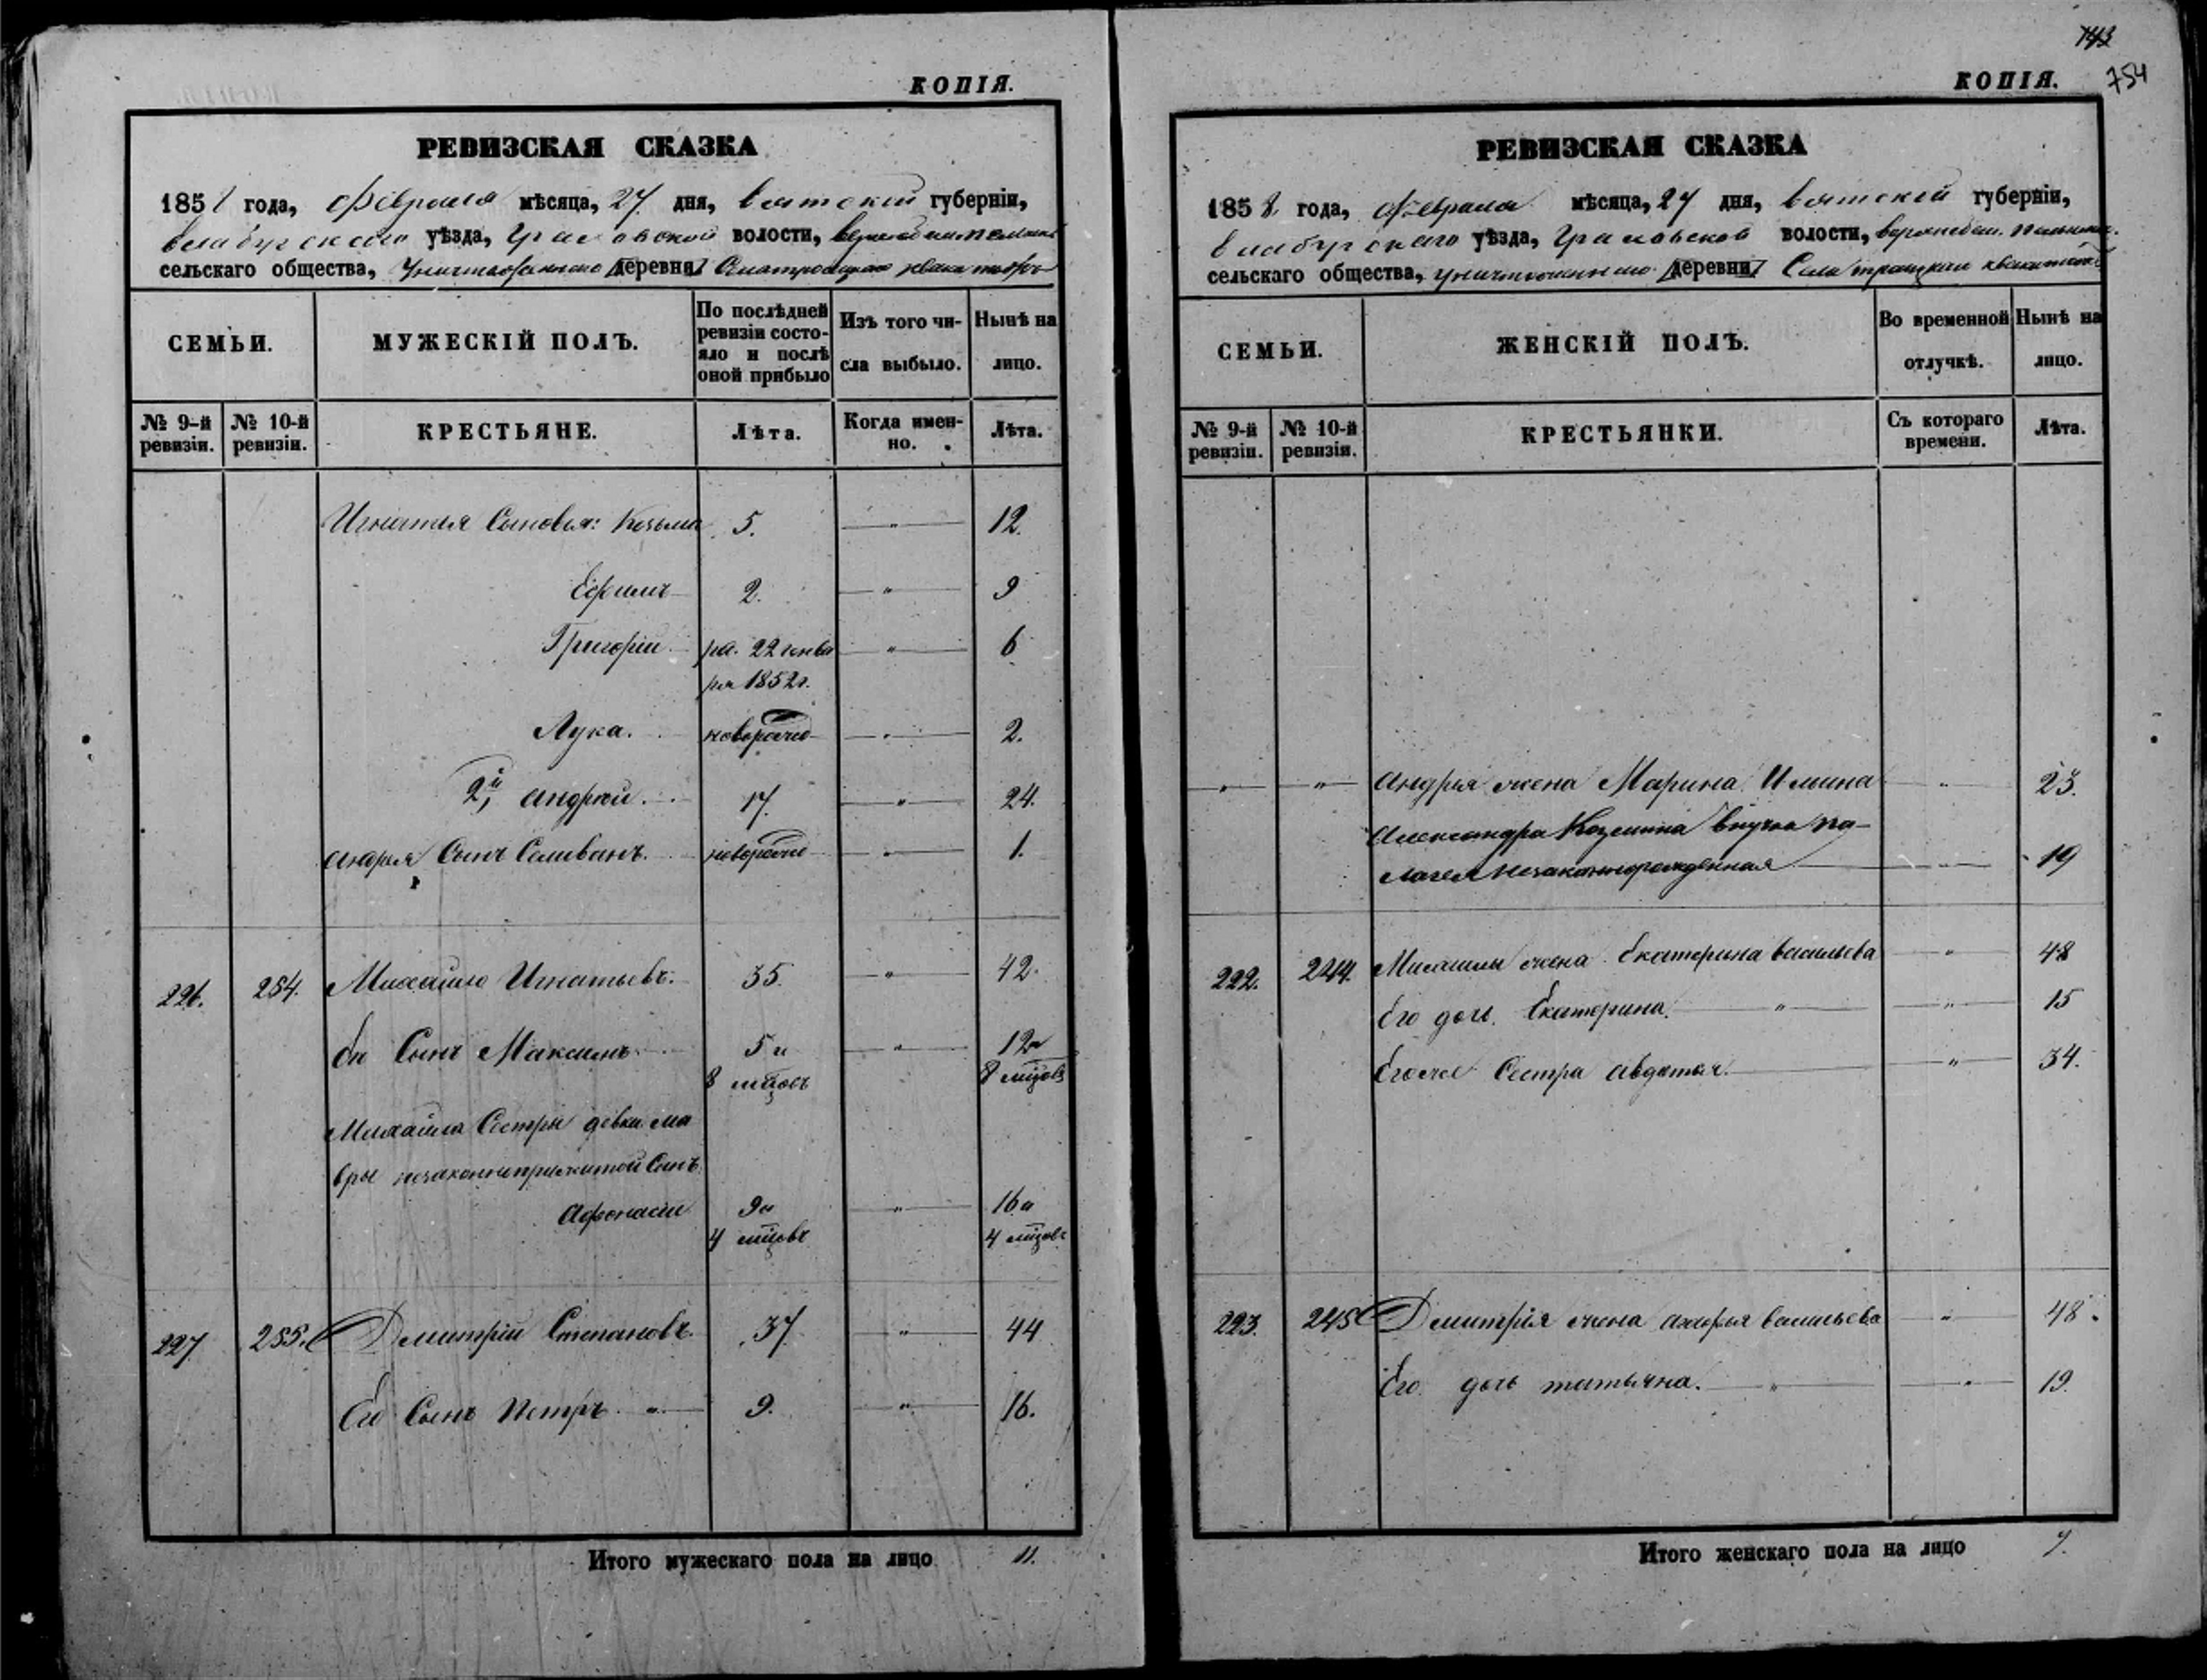 КОПІЯ.
РЕВИЗСКАЯ СКАЗКА
1858 года, Февраля мѣсяца, 27 дня, Вятской губерніи,
Елабугскаго уѣзда, Граховской волости,
сельскаго общества, деревни
СЕМЬИ.
МУЖЕСКІЙ ПОЛЪ.
По послѣдней
ревизіи состо-
яло и послѣ
оной прибыло
Изъ того чи-
сла выбыло.
Нынѣ на
лицо.
№ 9-й
ревизіи.
№ 10-й
ревизіи.
КРЕСТЬЯНЕ.
Лѣта.
Когда имен-
но.
Лѣта.
Игнатья Сыновья: Козьма 5. — „ — 12.
Ефимъ 2. — „ — 9
Григорій ро. 22 генва — „ — 6
ря 1852 г.
Лука. новорожде — „ — 2.
2й, Андрей. 17. — „ — 24.
Андрея Сынъ Селиванъ. новорожде — „ — 1.
226. 254. Михайло Игнатьевъ. 35. — „ — 42.
Его Сынъ Максимъ. 5 и — „ — 12 и
8 мцовъ 8 мцовъ
Михайла Сестры девки Ма
вры незаконноприжитой Сынъ
Афонасій 9 и — „ — 16 и
4 мцовъ 4 мцовъ
227. 255. Дмитрій Степановъ. 37. — „ — 44
Его Сынъ Петръ. „ — 9. — „ — 16.
Итого мужескаго пола на лицо 11.
143
КОПІЯ. 754
РЕВИЗСКАЯ СКАЗКА
1858 года, Февраля мѣсяца, 27 дня, Вятской губерніи,
Елабугскаго уѣзда, Граховской волости,
сельскаго общества, деревни
СЕМЬИ.
ЖЕНСКІЙ ПОЛЪ.
Во временной
отлучкѣ.
Нынѣ на
лицо.
№ 9-й
ревизіи.
№ 10-й
ревизіи.
КРЕСТЬЯНКИ.
Съ котораго
времени.
Лѣта.
— „ — — „ — Андрея жена Марина Ильина — „ — 23.
Александра Козмина внучка Па-
лагея незаконнорожденная — „ — 19
222. 244. Михайлы жена Екатерина Васильева — „ — 48
Его дочь Екатерина. — „ — — „ — 15
Егоже Сестра Авдотья. — „ — 34.
223. 245 Дмитрія жена Васильева — „ — 48.
Его дочь Татьяна. — „ — — „ — 19.
Итого женскаго пола на лицо 7.